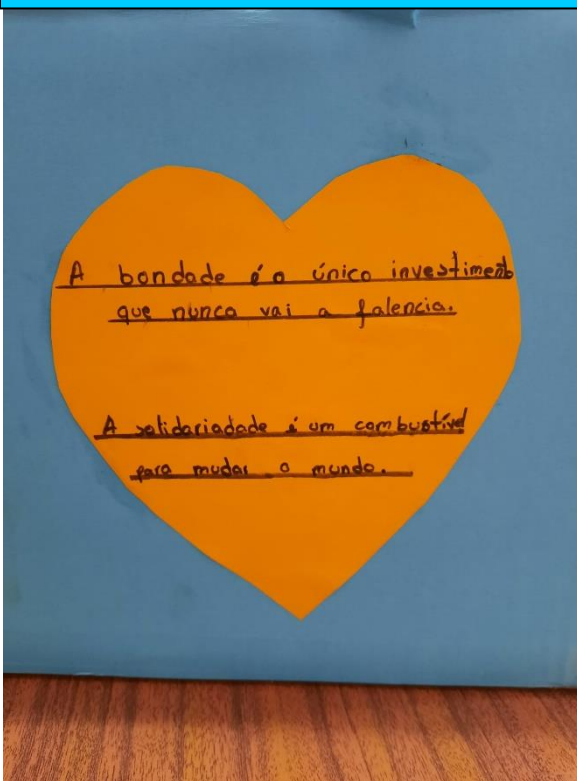 A bondade é o único investimento
que nunca vai a falencia.
A solidariadade é um combustível
para mudar o mundo.